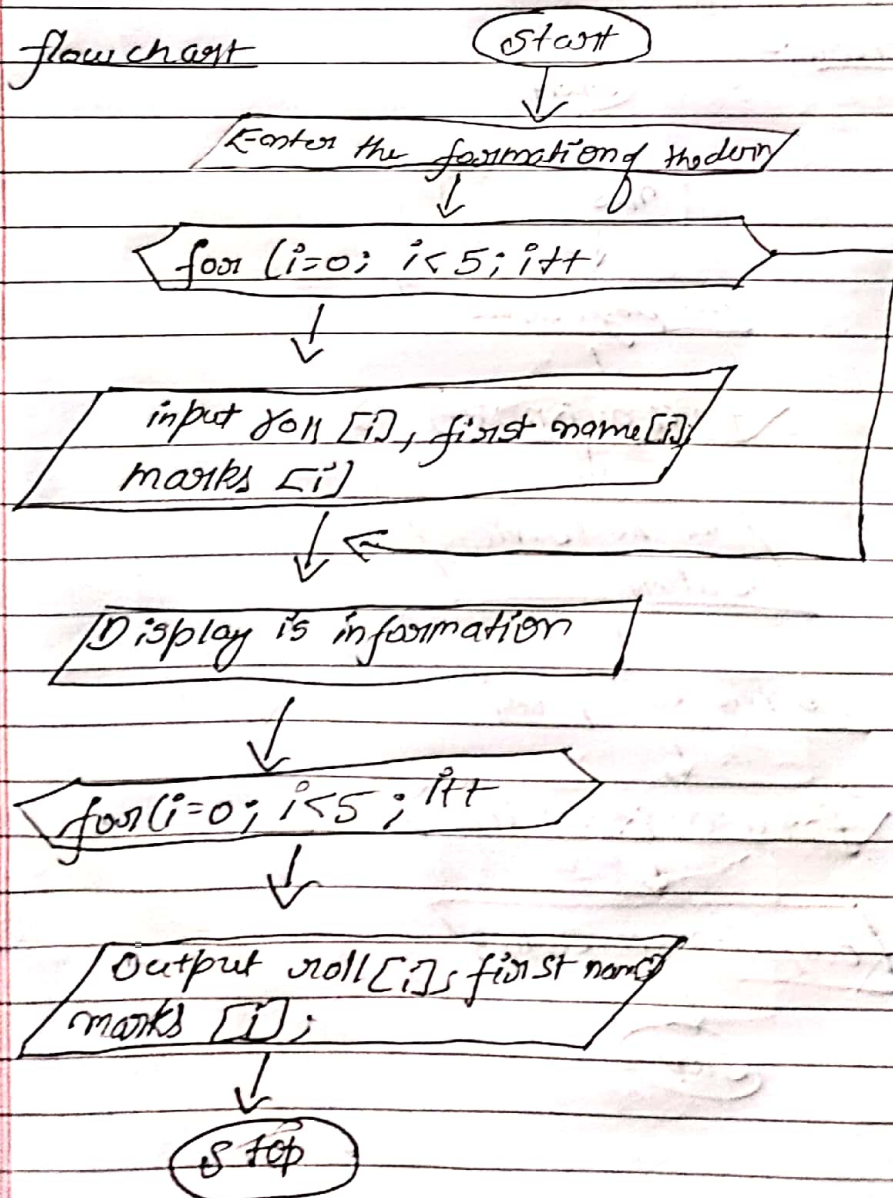 flow chart
Start
Enter the formation of
for (i=0; i<5; i++
input roll [i], first name[i]
marks [i]
Display is information
for(i=0; i<5; i++
output roll[i], first name
marks [i];
Stop